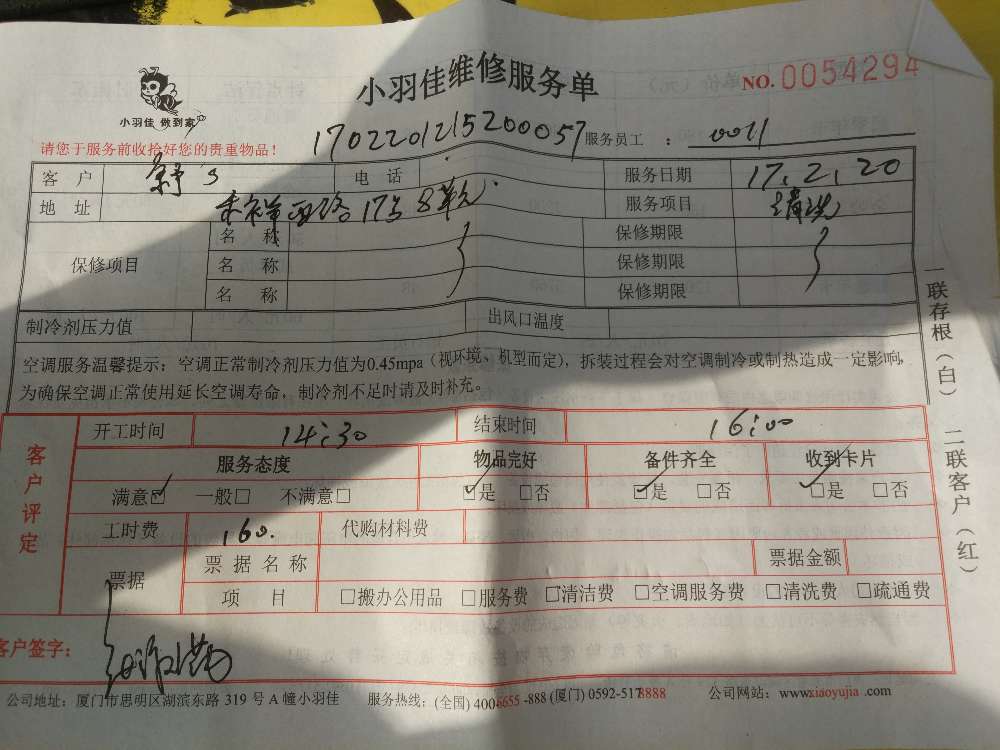 小羽佳维修服务单
NO.0054294
小羽佳 做到家
请您于服务前收拾好您的贵重物品！
1702201215200057 服务员工 ： 0011
客 户 电 话 服务日期 17.2.20
地 址 17号8单元 服务项目 清洗
保修项目
名 称 保修期限
名 称 保修期限
名 称 保修期限
制冷剂压力值 出风口温度
空调服务温馨提示：空调正常制冷剂压力值为0.45mpa（视环境、机型而定），拆装过程会对空调制冷或制热造成一定影响，
为确保空调正常使用延长空调寿命，制冷剂不足时请及时补充。
一联存根（白） 二联客户（红）
客户评定
开工时间 14:30 结束时间 16:00
服务态度 物品完好 备件齐全 收到卡片
满意☑ 一般□ 不满意□ ☑是 □否 ☑是 □否 ☑是 □否
工时费 160. 代购材料费
票据 票据名称 票据金额
项 目 □搬办公用品 □服务费 □清洁费 □空调服务费 □清洗费 □疏通费
客户签字：
公司地址：厦门市思明区湖滨东路 319 号 A 幢小羽佳 服务热线：(全国) 400-6655 -888 (厦门) 0592-5178888 公司网站：www.xiaoyujia .com